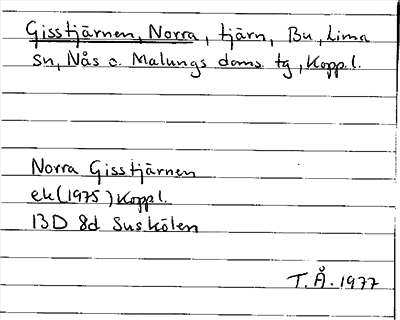 Gisstjärnen, Norra, tjärn, Bu, Lima
sn, Nås o. Malungs doms. tg, Koppl.
Norra Gisstjärnen
ek (1975) Koppl.
13D 8d Suskölen
T. Å. 1977